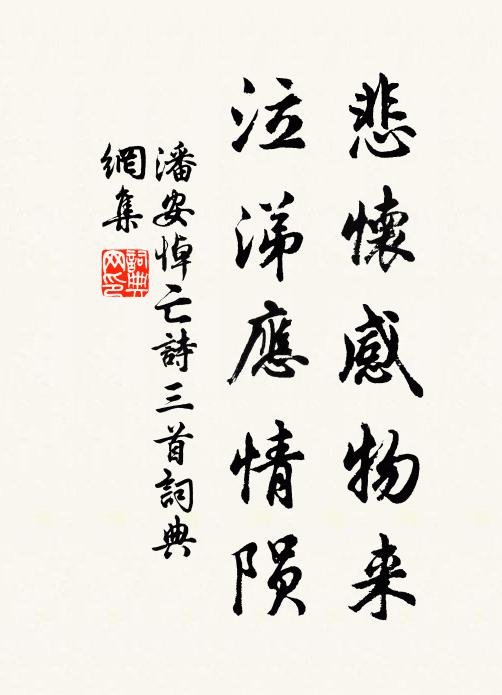 悲懷感物来
泣涕應情隕
潘安悼亡詩三首詞典
網集
詞典网印